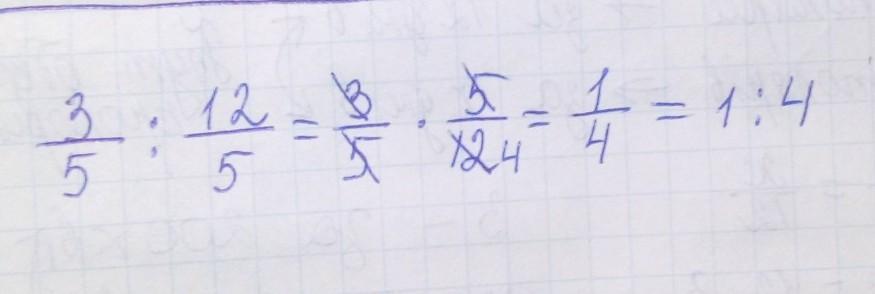 3/5 : 12/5 = 3/5 · 5/12 4 = 1/4 = 1:4